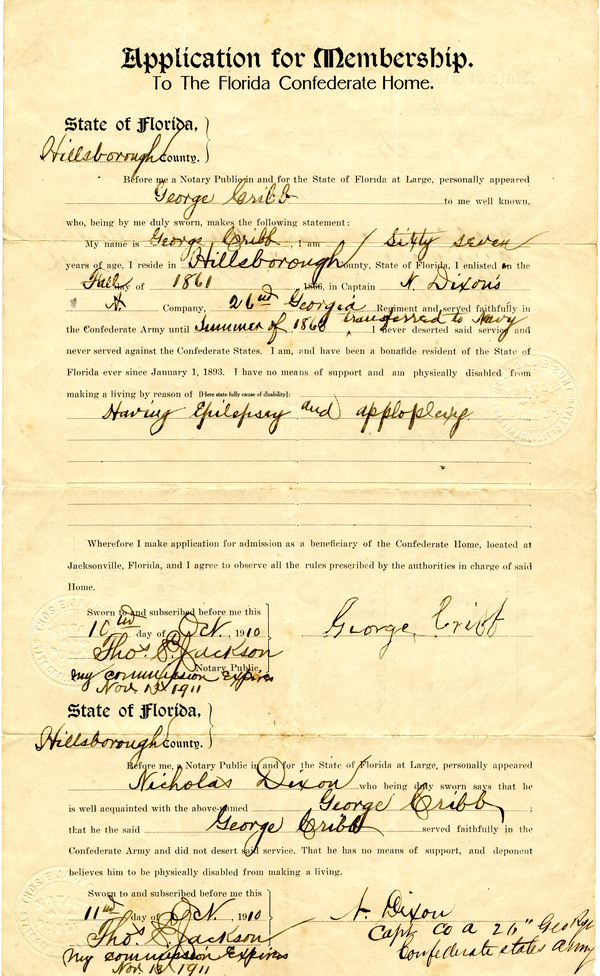 Application for Membership.
To The Florida Confederate Home.
State of Florida,
Hillsborough County.
Before me a Notary Public in and for the State of Florida at Large, personally appeared
George Cribb to me well known,
who, being by me duly sworn, makes the following statement:
My name is George Cribb, I am Sixty seven
years of age, I reside in Hillsborough County, State of Florida, I enlisted on the
Fall day of 1861 186 , in Captain N. Dixon's
A. Company, 26nd Georgia Regiment and served faithfully in
the Confederate Army until Summer of 1863 transferred to Navy, I never deserted said service and
never served against the Confederate States. I am, and have been a bonafide resident of the State of
Florida ever since January 1, 1893. I have no means of support and am physically disabled from
making a living by reason of [Here state fully cause of disability]:
Having Epilepsey and apploplexy.
Wherefore I make application for admission as a beneficiary of the Confederate Home, located at
Jacksonville, Florida, and I agree to observe all the rules prescribed by the authorities in charge of said
Home.
Sworn to and subscribed before me this
10nd day of Oct. , 1910
George Cribb
Thos. E. Jackson
Notary Public.
My commission Expires
Nov. 13 1911
State of Florida,
Hillsborough County.
Before me, a Notary Public in and for the State of Florida at Large, personally appeared
Nicholas Dixon who being duly sworn says that he
is well acquainted with the above-named George Cribb ;
that he the said George Cribb served faithfully in the
Confederate Army and did not desert said service. That he has no means of support, and deponent
believes him to be physically disabled from making a living.
Sworn to and subscribed before me this
11nd day of Oct. , 1910
N. Dixon
Capt Co A 26" Geo Rgt
Confederate states army
Thos E. Jackson
My commission Expires
Nov. 13 1911